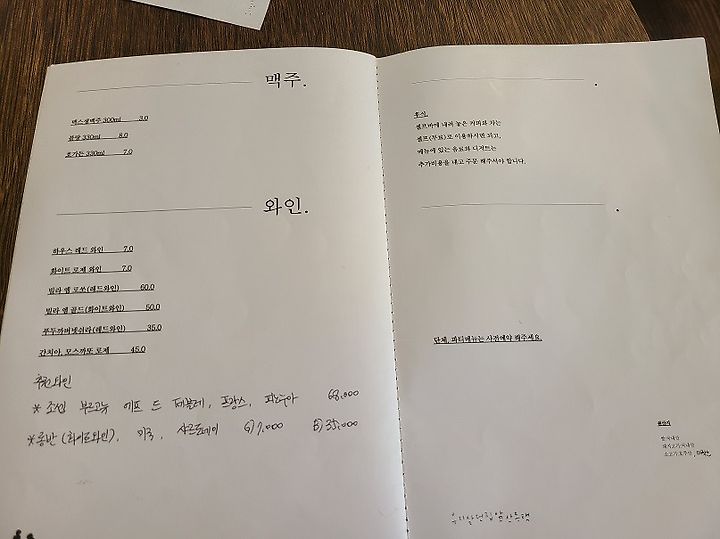 맥주.
맥스생맥주 300ml 3.0
블랑 330ml 8.0
호가든 330ml 7.0
와인.
하우스 레드 와인 7.0
화이트 로제 와인 7.0
빌라 엠 로쏘(레드와인) 60.0
빌라 엠 골드(화이트와인) 50.0
투두까버넷쉬라(레드와인) 35.0
간치아, 모스까또 로제 45.0
추천와인
* 조셉 부르고뉴 드 프랑스, 피노누아 68,000
* 롱반(화이트와인), 미국, 샤르도네이 35,000
후식.
셀프바에 내려 놓은 커피와 차는
셀프(무료)로 이용하시면 되고,
메뉴에 있는 음료와 디저트는
추가비용을 내고 주문 해주셔야 합니다.
단체, 파티메뉴는 사전예약 해주세요.
원산지
쌀:국내산
돼지고기:국내산
소고기:호주산,
우리살던집앞산동댁